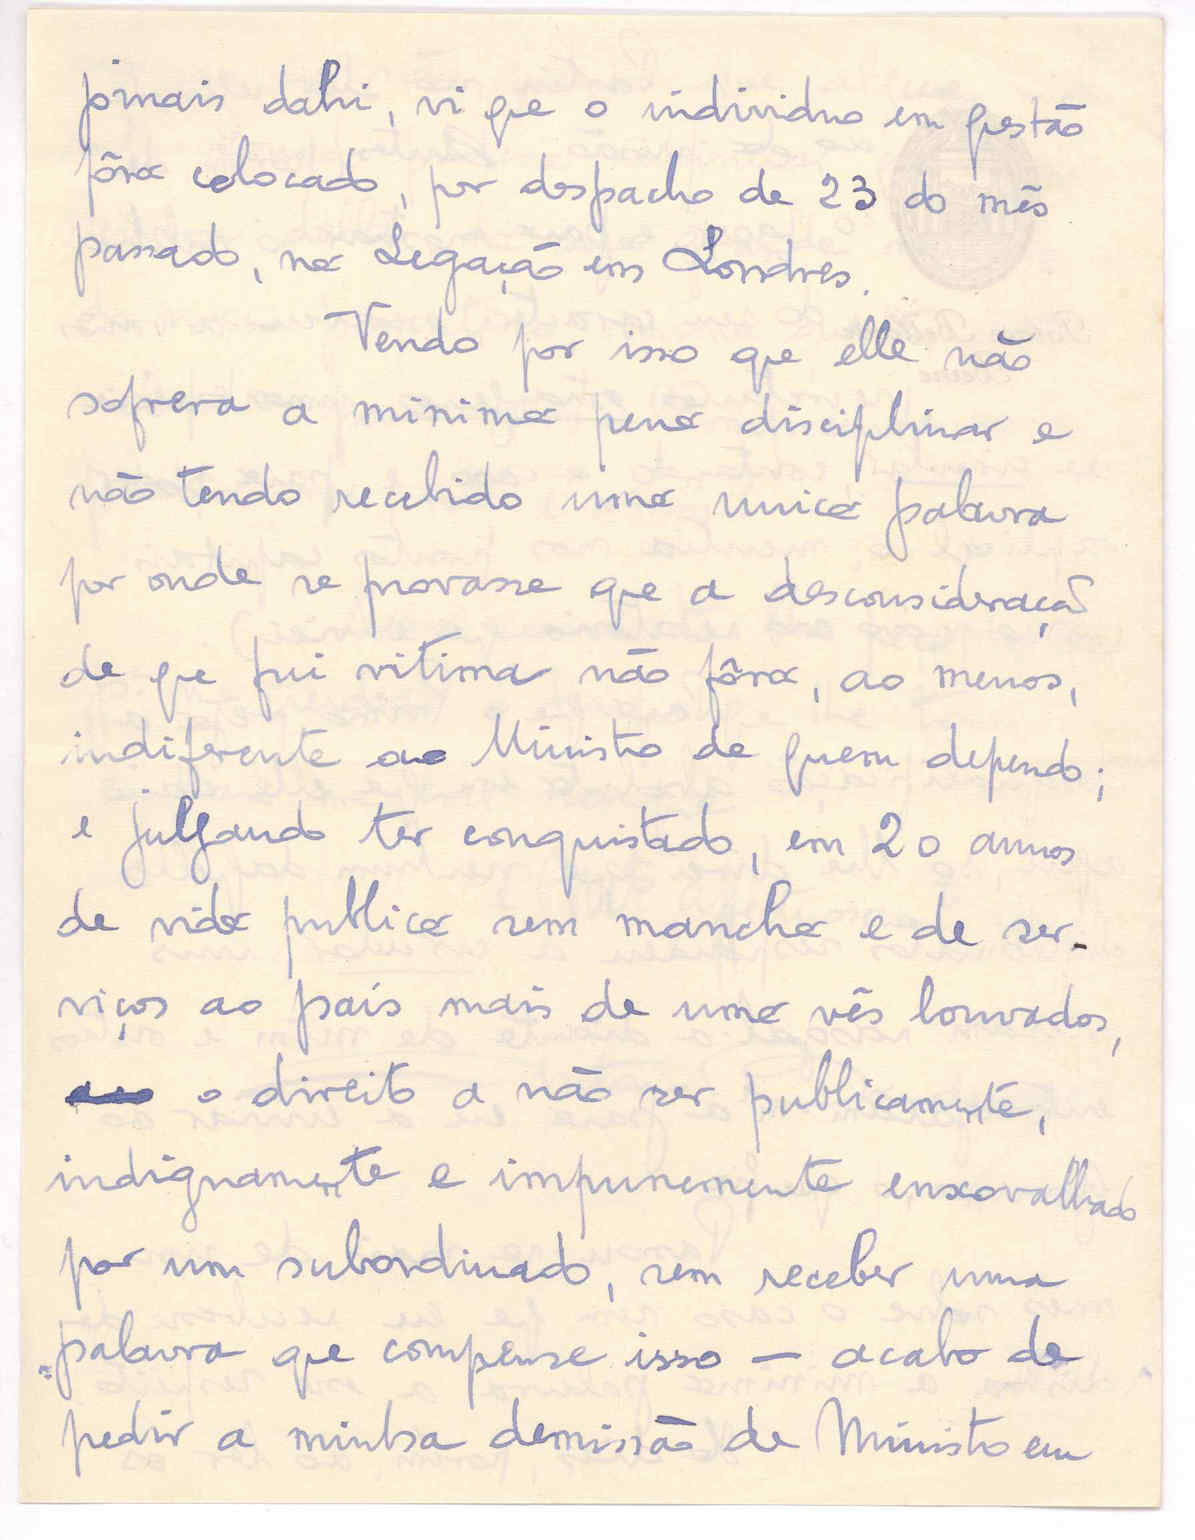 jornais dahi, vi que o individuo em questão
fôra colocado, por despacho de 23 do mês
passado, na Legação em Londres.
Vendo por isso que elle não
sofrera a minima pena disciplinar e
não tendo recebido uma unica palavra
por onde se provasse que a desconsideração
de que fui vitima não fôra, ao menos,
indiferente ao Ministro de quem dependo;
e julgando ter conquistado, em 20 annos
de vida publica sem mancha e de ser-
viços ao país mais de uma vês louvados,
o direito a não ser publicamente,
indignamente e impunemente enxovalhado
por um subordinado, sem receber uma
palavra que compense isso — acabo de
pedir a minha demissão de Ministro em